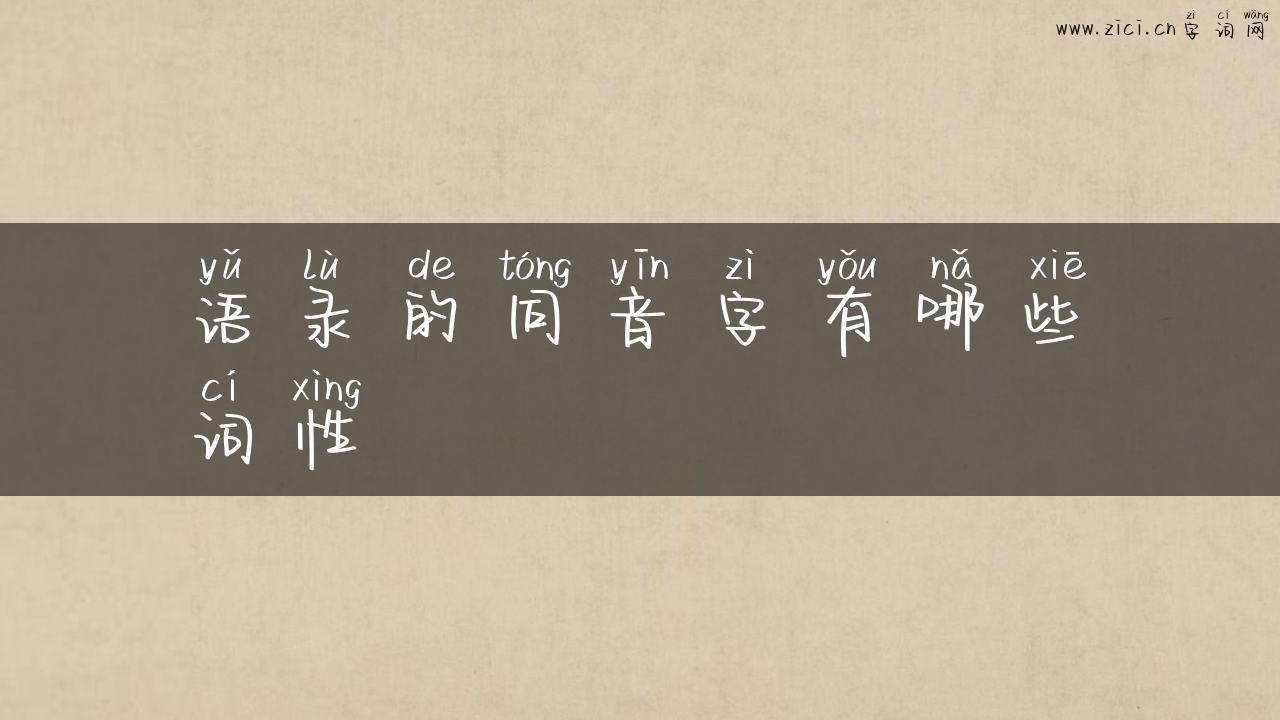 zì cí wǎng
www.zici.cn 字词网
yǔ lù de tóng yīn zì yǒu nǎ xiē
语录的同音字有哪些
cí xìng
词性